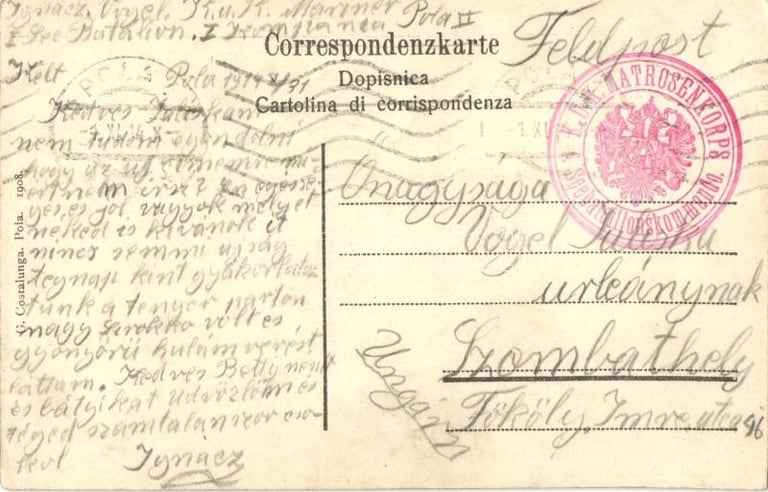 Ignácz Vogel. K.u.K. Matriner Pola II
I See Batalion. I Kompania
Correspondenzkarte
Dopisnica
Cartolina di corrispondenza
Feldpost
POLA
K.U.K. MATROSENKORPS
G. Costalunga. Pola. 1908.
Kelt Pola 1914 X/31
Kedves Juliskám
nem tudom egondolni
hogy az uj címemre mi-
ért nem irsz? én egess-
ges és jol vagyok melyet
neked is kivanok it
nincs semmi ujság
tegnap kint gyakorlatoz
tunk a tenger parton
nagy sirokko volt es
gyönyörü hulám verést
láttam. Kedves Betty nenit
és bátyikat üdvözlöm es
téged számtalanszor cso-
kol Ignácz
Onagysaga
Vogel Juliska
urleánynak
Szombathely
Tököly Imre utca 46
Ungarn